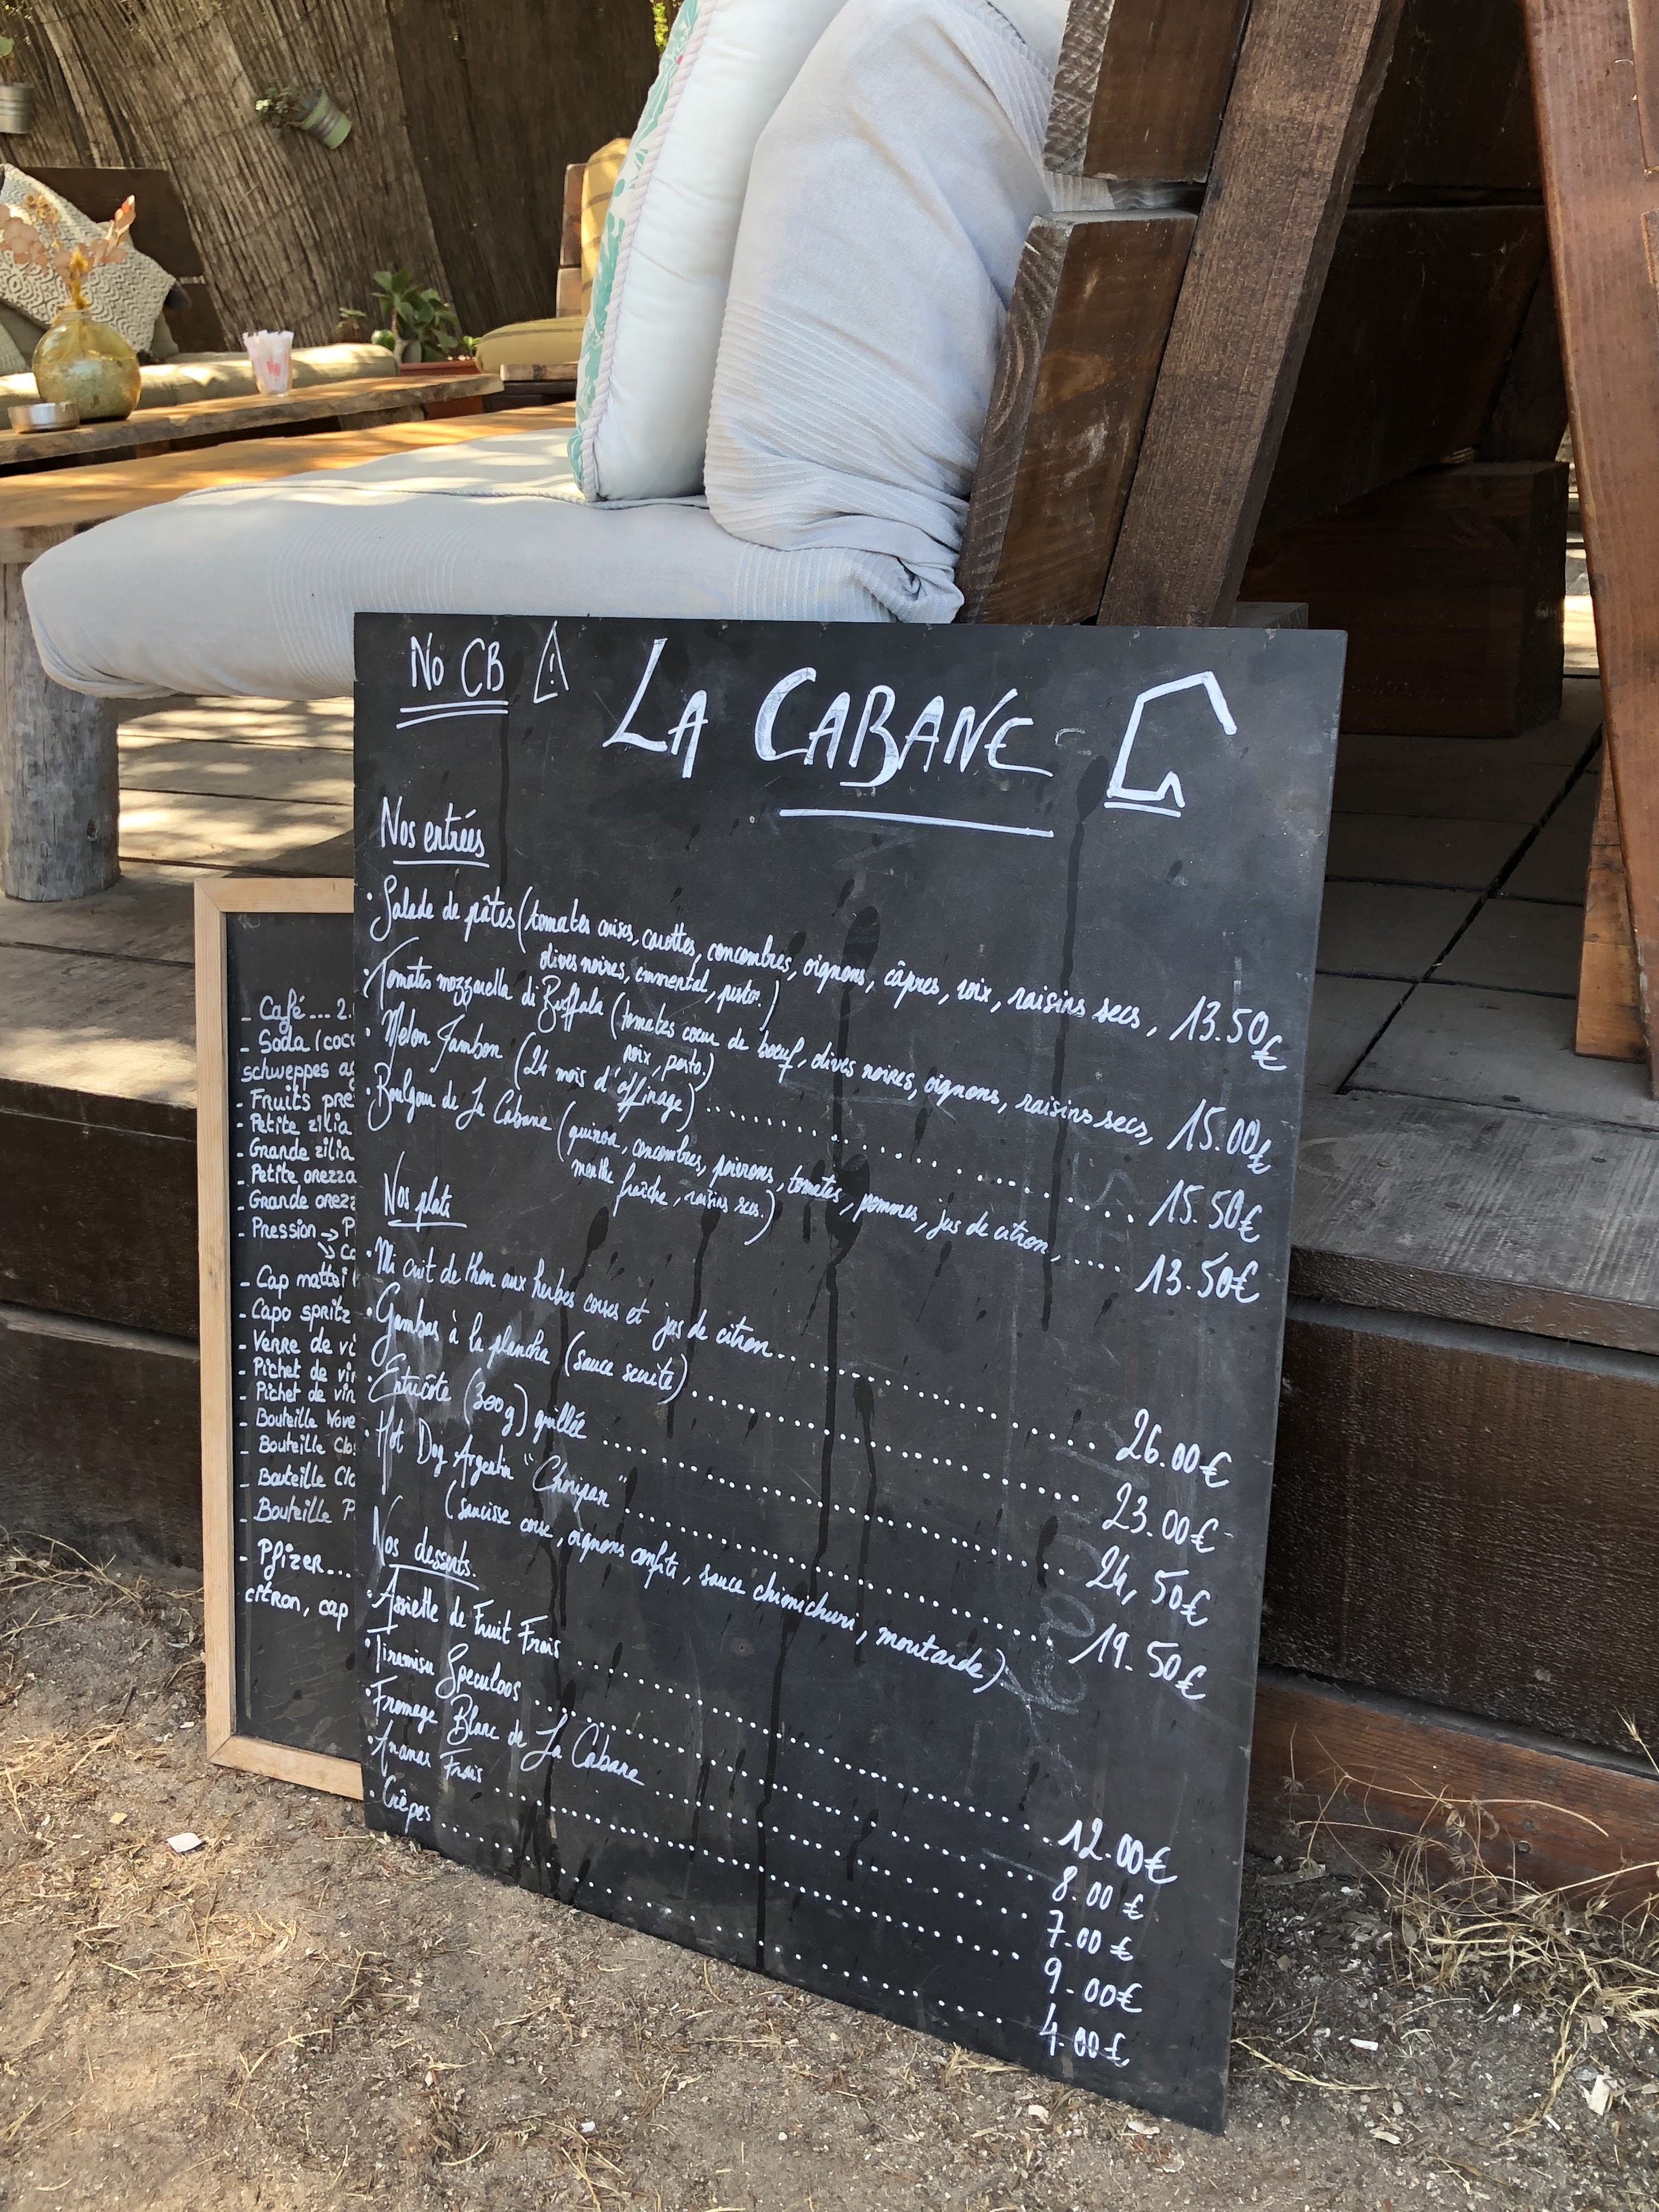 No CB
LA CABANE
Nos entrées
· Salade de pâtes (tomates cerises, carottes, concombres, oignons, câpres, noix, raisins secs, 13.50€
olives noires, emmental, pesto.)
· Tomates mozzarella di Buffala (tomates coeur de boeuf, olives noires, oignons, raisins secs, 15.00€
noix, pesto.)
· Melon Jambon (24 mois d'affinage) .......... 15.50€
· Boulgour de La Cabane (quinoa, concombres, poivrons, tomates, pommes, jus de citron, ..... 13.50€
menthe fraîche, raisins secs.)
Nos plats
· Mi cuit de thon aux herbes corses et jus de citron .......... 26.00€
· Gambas à la plancha (sauce secrète) .......... 23.00€
· Entrecôte (300g) grillée .......... 24,50€
· Hot Dog Argentin "Choripan" .......... 19.50€
(saucisse corse, oignons confits, sauce chimichuri, moutarde)
Nos desserts
· Assiette de Fruit Frais .......... 12.00€
· Tiramisu Speculoos .......... 8.00€
· Fromage Blanc de La Cabane .......... 7.00€
· Ananas Frais .......... 9.00€
· Crêpes .......... 4.00€
- Café ... 2.
- Soda (coc
schweppes ag
- Fruits pre
- Petite zilia
- Grande zilia
- Petite orezza
- Grande orezz
- Pression → P
↘ Co
- Cap mattei (
- Capo spritz
- Verre de vi
- Pichet de vin
- Pichet de vin
- Bouteille Nove
- Bouteille Clo
- Bouteille Clo
- Bouteille P
- Pfizer...
citron, cap